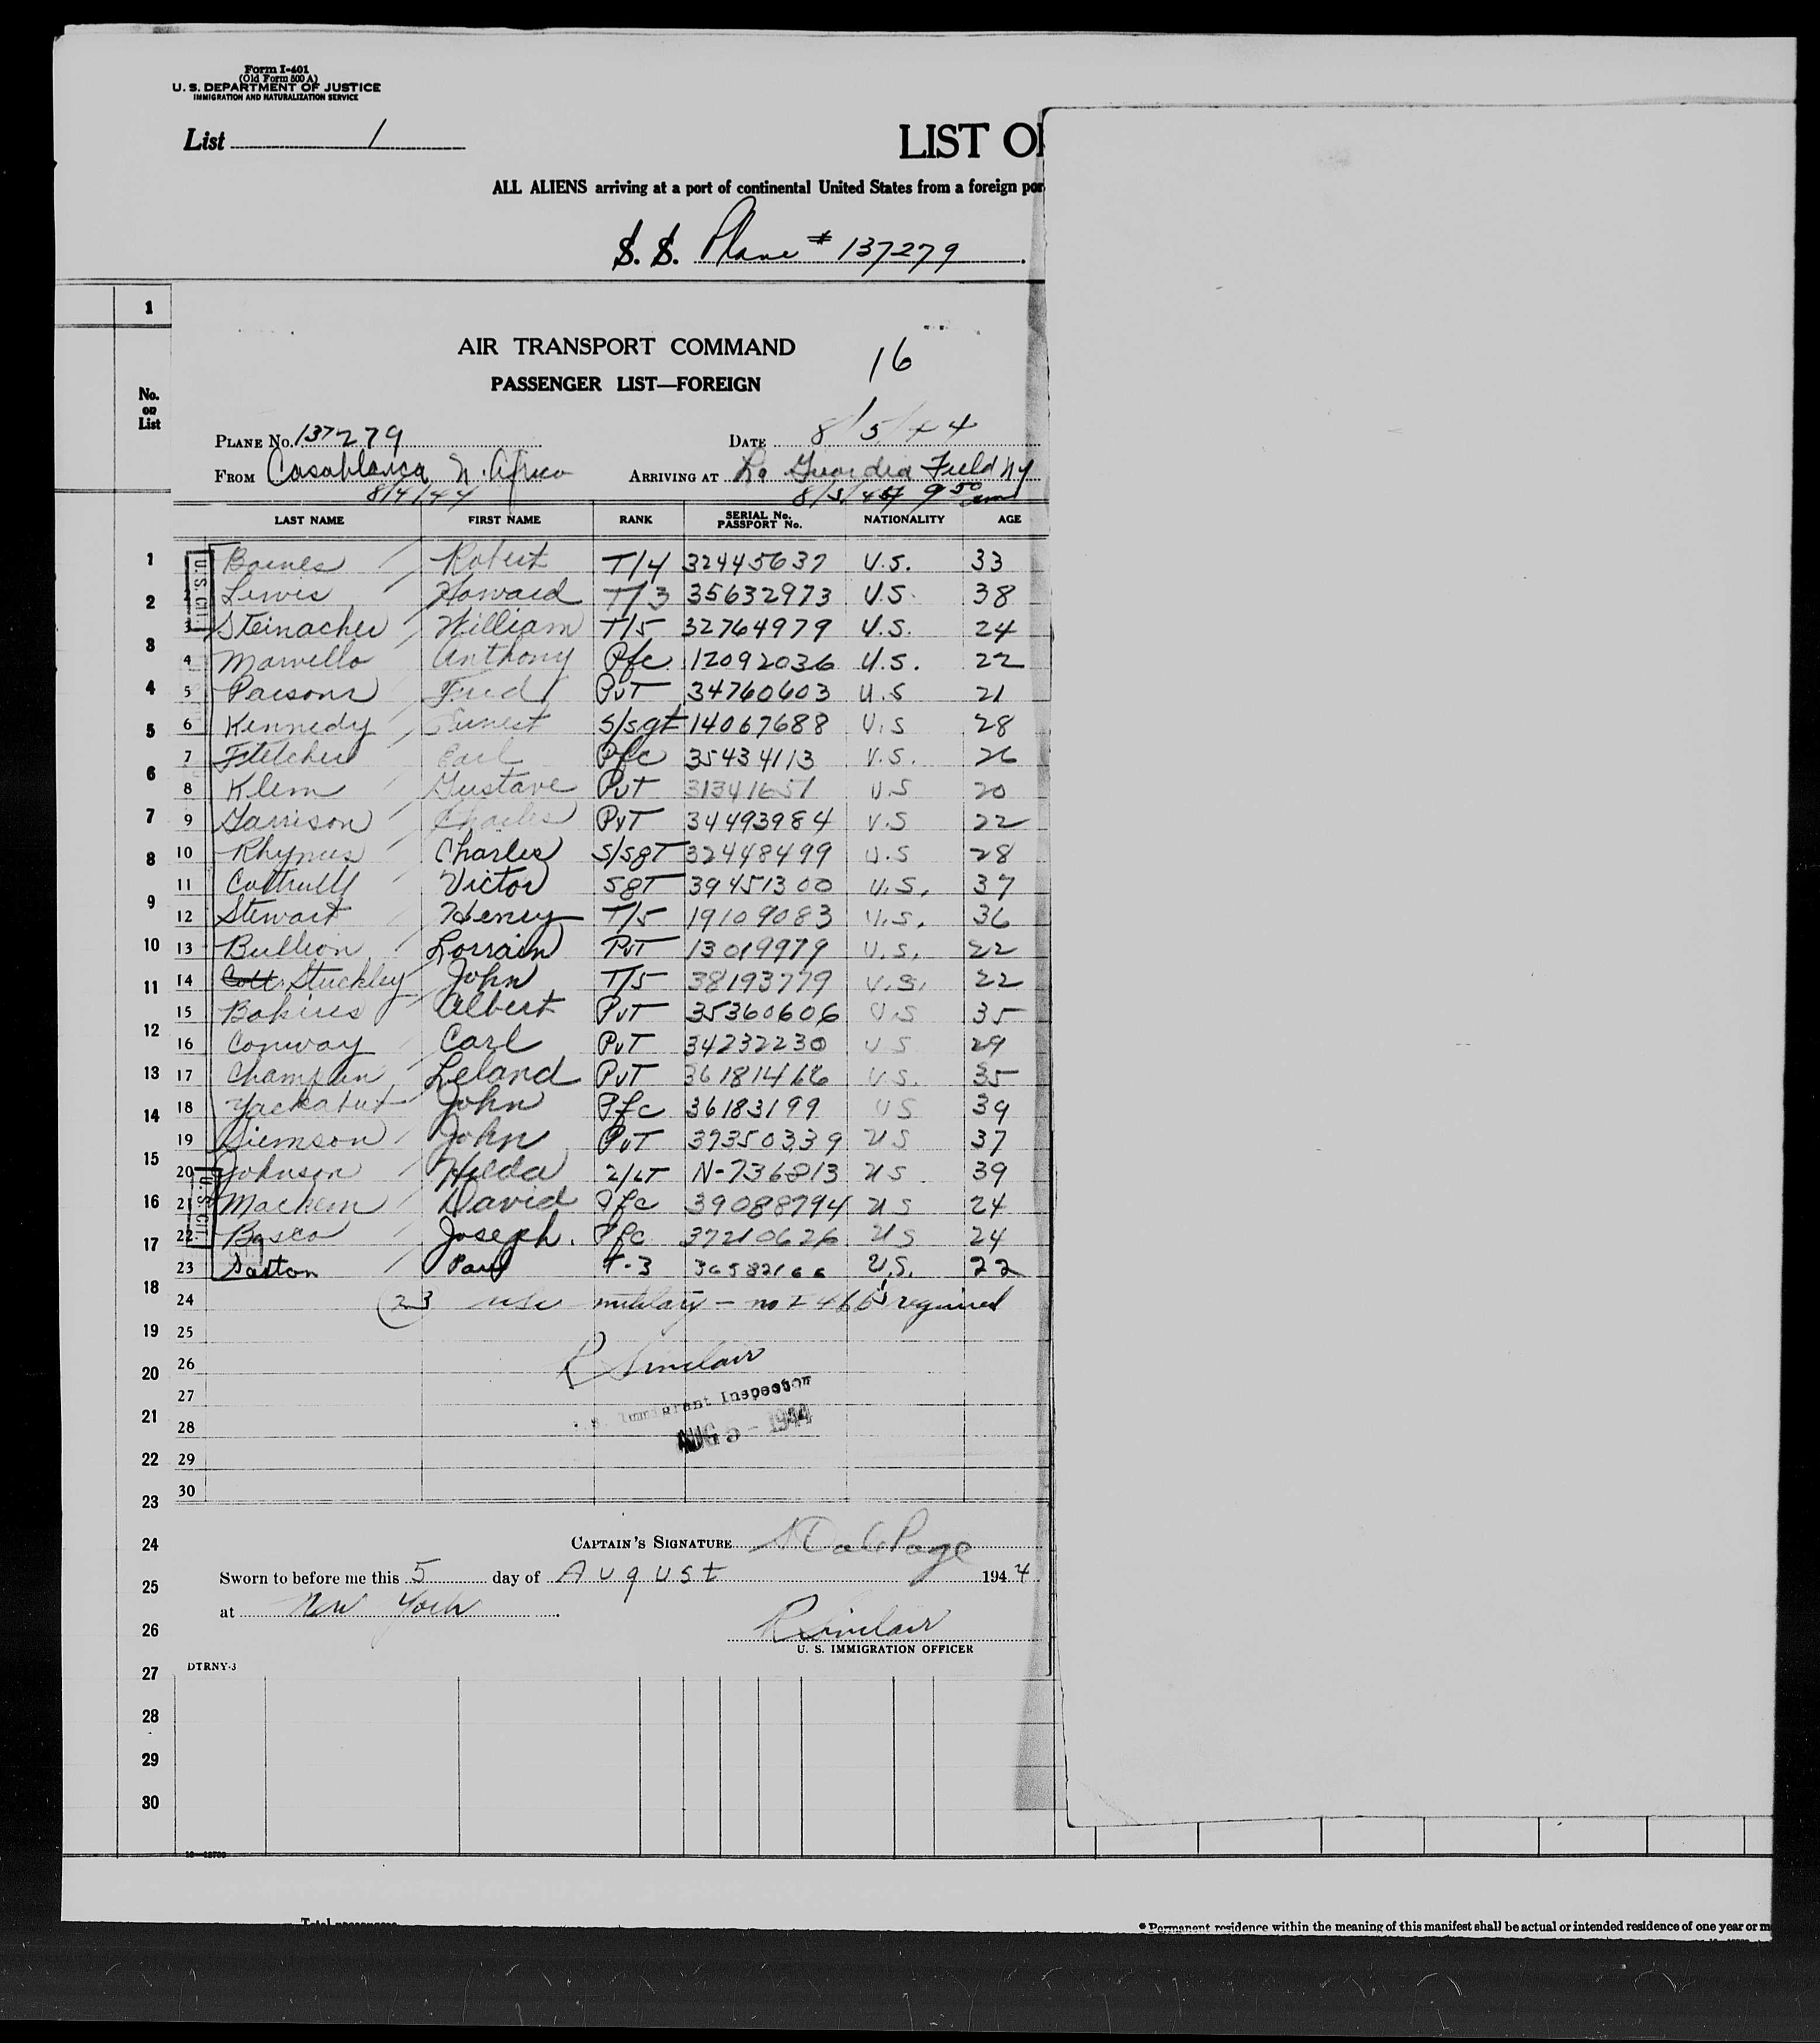 Form I-401
(Old Form 500 A)
U. S. DEPARTMENT OF JUSTICE
IMMIGRATION AND NATURALIZATION SERVICE
List 1
LIST O
ALL ALIENS arriving at a port of continental United States from a foreign por
S. S. Plane # 137279
1
No. on List
AIR TRANSPORT COMMAND
16
PASSENGER LIST—FOREIGN
PLANE No. 137279 DATE 8/5/44
FROM Casablanca N. Africa ARRIVING AT La Guardia Field NY
8/4/44 8/5/44 9 50 am
LAST NAME FIRST NAME RANK SERIAL No. PASSPORT No. NATIONALITY AGE
U. S. CIT.
1 Robert T/4 32445637 U.S. 33
2 Lewis Howard T/3 35632973 U.S. 38
3 Steinacher William T/5 32764979 U.S. 24
4 Anthony Pfc 12092036 U.S. 22
5 Parsons Fred PvT 34760603 U.S 21
6 Kennedy Ernest S/sgt 14067688 U.S 28
7 Fletcher Earl Pfc 35434113 U.S. 26
8 Klem Gustave PvT 31341651 U.S 20
9 Garrison Charles PvT 34493984 U.S 22
10 Rhymes Charles S/sgT 32448499 U.S 28
11 Victor SgT 39451300 U.S. 37
12 Stewart Henry T/5 19109083 U.S. 36
13 Bullion Lorrain PvT 13019979 U.S. 22
14 Stuckley John T/5 38193779 U.S. 22
15 Albert PvT 35360606 U.S 35
16 Conway Carl PvT 34232230 U S 29
17 Champlin Leland PvT 36181466 U.S. 35
18 John Pfc 36183199 US 39
19 Siemson John PvT 37350339 US 37
20 Johnson Hilda 2/LT N-736813 US 39
U. S. CIT.
21 David Pfc 39088794 US 24
22 Bosco Joseph. Pfc 37210626 US 24
23 Paul T-3 36582166 U.S. 22
24 (23 military — no I-466's required
25
26 R Sinclair
27 Immigrant Inspector
28 AUG 5 - 1944
29
30
CAPTAIN'S SIGNATURE
Sworn to before me this 5 day of August 1944
at New York
R Sinclair
U. S. IMMIGRATION OFFICER
DTRNY-3
1
2
3
4
5
6
7
8
9
10
11
12
13
14
15
16
17
18
19
20
21
22
23
24
25
26
27
28
29
30
Total passengers
* Permanent residence within the meaning of this manifest shall be actual or intended residence of one year or m